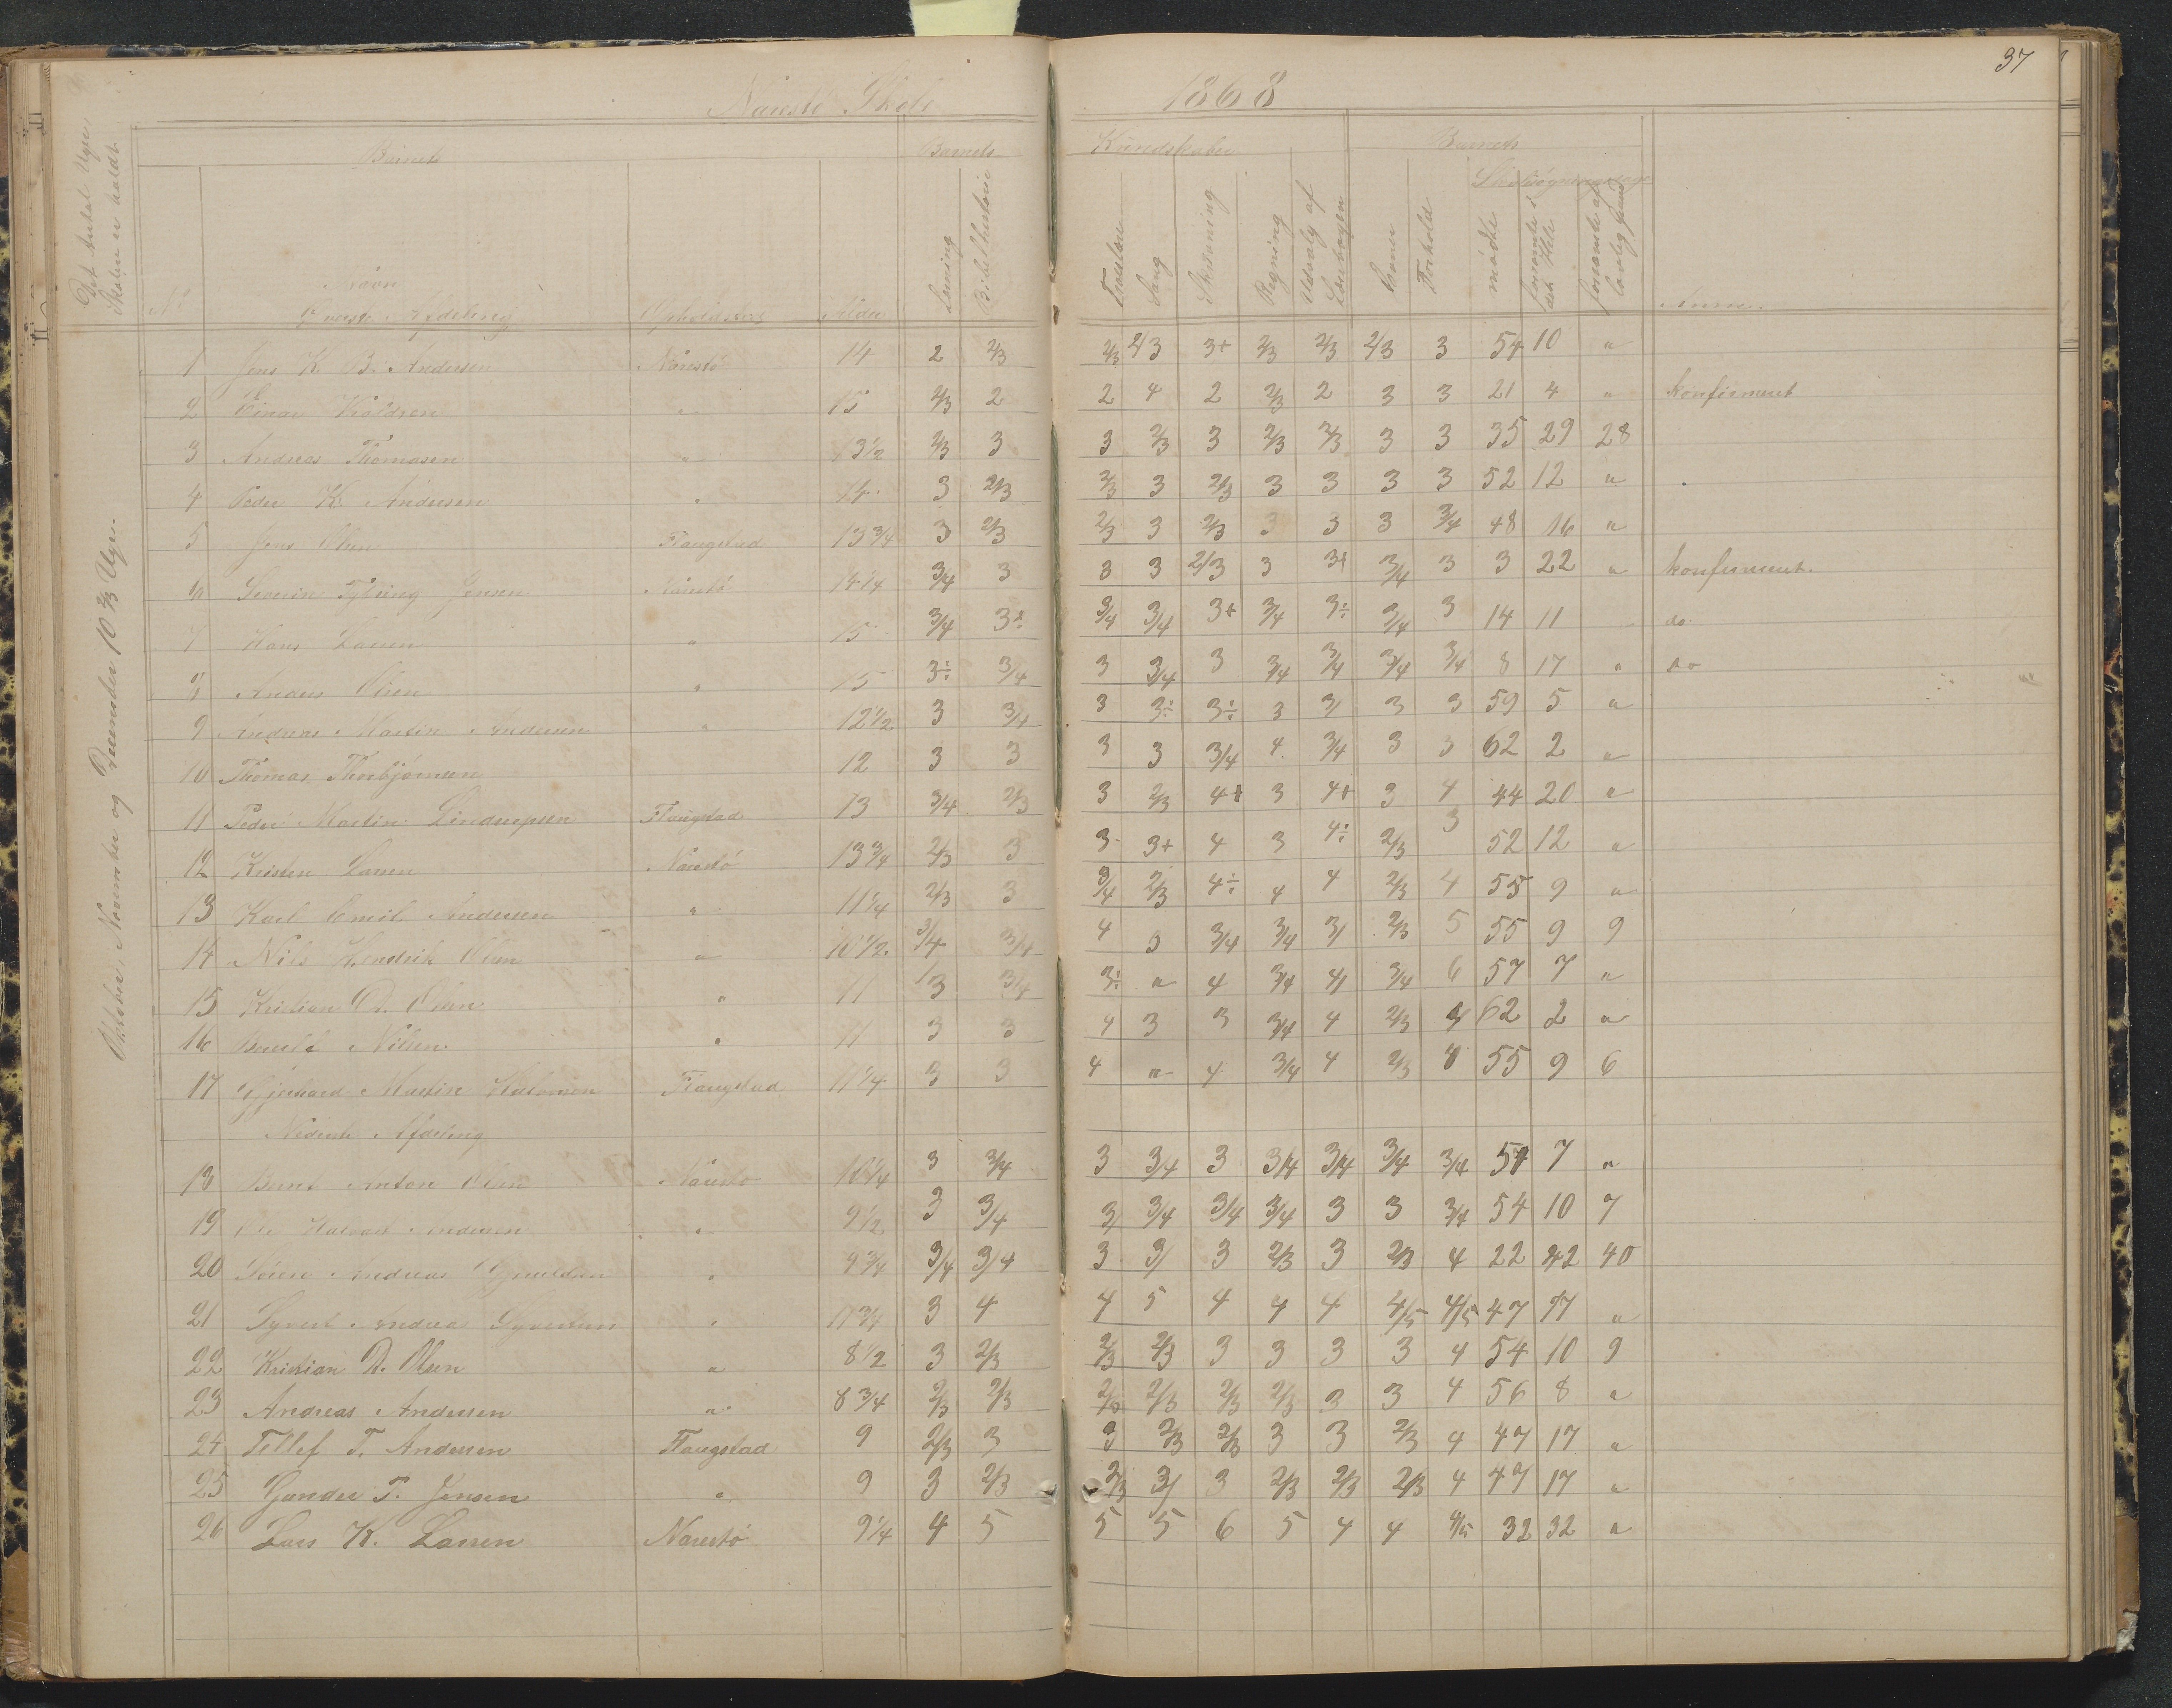 37
Narestö Skole 1868
Det Antal Uger, Skolen er holdt
Oktober, November og December 10 2/3 Uge.
Barnets Barnets Kundskaber Barnets
Skolesøgningsdage
No Navn Opholdssted Alder Læsning Bibelhistorie Troeslære Sang Skrivning Regning Udvalg af Læsebogen Evner Forhold mødte forsømte i det Hele forsømte af lovlig Grund Anm.
Øverste Afdeling
1 Jens K. B. Andersen Narestö 14 2 2/3 2/3 2/3 3+ 2/3 2/3 2/3 3 54 10 "
2 Einar " 15 2/3 2 2 4 2 2/3 2 3 3 21 4 " konfirmeret
3 Andreas Thomasen " 13 1/2 2/3 3 3 2/3 3 2/3 2/3 3 3 35 29 28
4 Peder K. Andersen " 14 3 2/3 2/3 3 2/3 3 3 3 3 52 12 "
5 Jens Olsen Flangstad 13 3/4 3 2/3 2/3 3 2/3 3 3 3 3/4 48 16 "
6 Severin Jensen Narestö 14 1/4 3/4 3 3 3 2/3 3 3+ 3/4 3 3 22 " konfirmeret.
7 Hans Larsen " 15 3/4 3÷ 3/4 3/4 3+ 3/4 3÷ 3/4 3 14 11 do.
8 Anders Olsen " 15 3÷ 3/4 3 3/4 3 3/4 3/4 3/4 3/4 8 17 " do
9 Andreas Martin Andersen " 12 1/2 3 3/4 3 3÷ 3÷ 3 3/ 3 3 59 5 "
10 Thomas Thorbjörnsen 12 3 3 3 3 3/4 4 3/4 3 3 62 2 "
11 Peder Martin Flangstad 13 3/4 2/3 3 2/3 4+ 3 4+ 3 4 44 20 "
12 Kristen Larsen Narestö 13 3/4 2/3 3 3 3+ 4 3 4÷ 2/3 3 52 12 "
13 Karl Emil Andersen " 11 1/4 2/3 3 3/4 2/3 4÷ 4 4 2/3 4 55 9 "
14 Nils Hendrik Olsen " 10 1/2 3/4 3/4 4 3 3/4 3/4 3/ 2/3 5 55 9 9
15 Kristian O. Olsen " 11 3 3/4 3÷ " 4 3/4 4/ 3/4 6 57 7 "
16 Nilsen " 11 3 3 4 3 3 3/4 4 2/3 4 62 2 "
17 Martin Halvorsen Flangstad 11 1/4 3 3 4 " 4 3/4 4 2/3 4 55 9 6
Nederste Afdeling
18 Bernt Anton Olsen Narestö 10 1/4 3 3/4 3 3/4 3 3/4 3/4 3/4 3/4 57 7 "
19 Ole Halvard Andersen " 9 1/2 3 3/4 3/ 3/4 3/4 3/4 3 3 3/4 54 10 7
20 Sören Andreas " 9 3/4 3/4 3/4 3 3/ 3 2/3 3 2/3 4 22 42 40
21 Syvert Andreas Syvertsen " 11 3/4 3 4 4 5 4 4 4 4/5 4/5 47 17 "
22 Kristian D. Olsen " 8 1/2 3 2/3 2/3 2/3 3 3 3 3 4 54 10 9
23 Andreas Andersen " 8 3/4 2/3 2/3 2/3 2/3 2/3 2/3 3 3 4 56 8 "
24 Tellef T. Andersen Flangstad 9 2/3 3 3 2/3 2/3 3 3 2/3 4 47 17 "
25 Gunder T. Jensen " 9 3 2/3 2/3 3/ 3 2/3 2/3 2/3 4 47 17 "
26 Lars K. Larsen Narestö 9 1/4 4 5 5 5 6 5 4 4 4/5 32 32 "